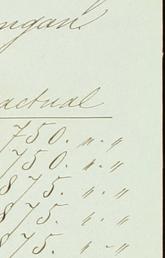 ngan
actual
750. " "
750. " "
875. " "
875. " "
875. " "